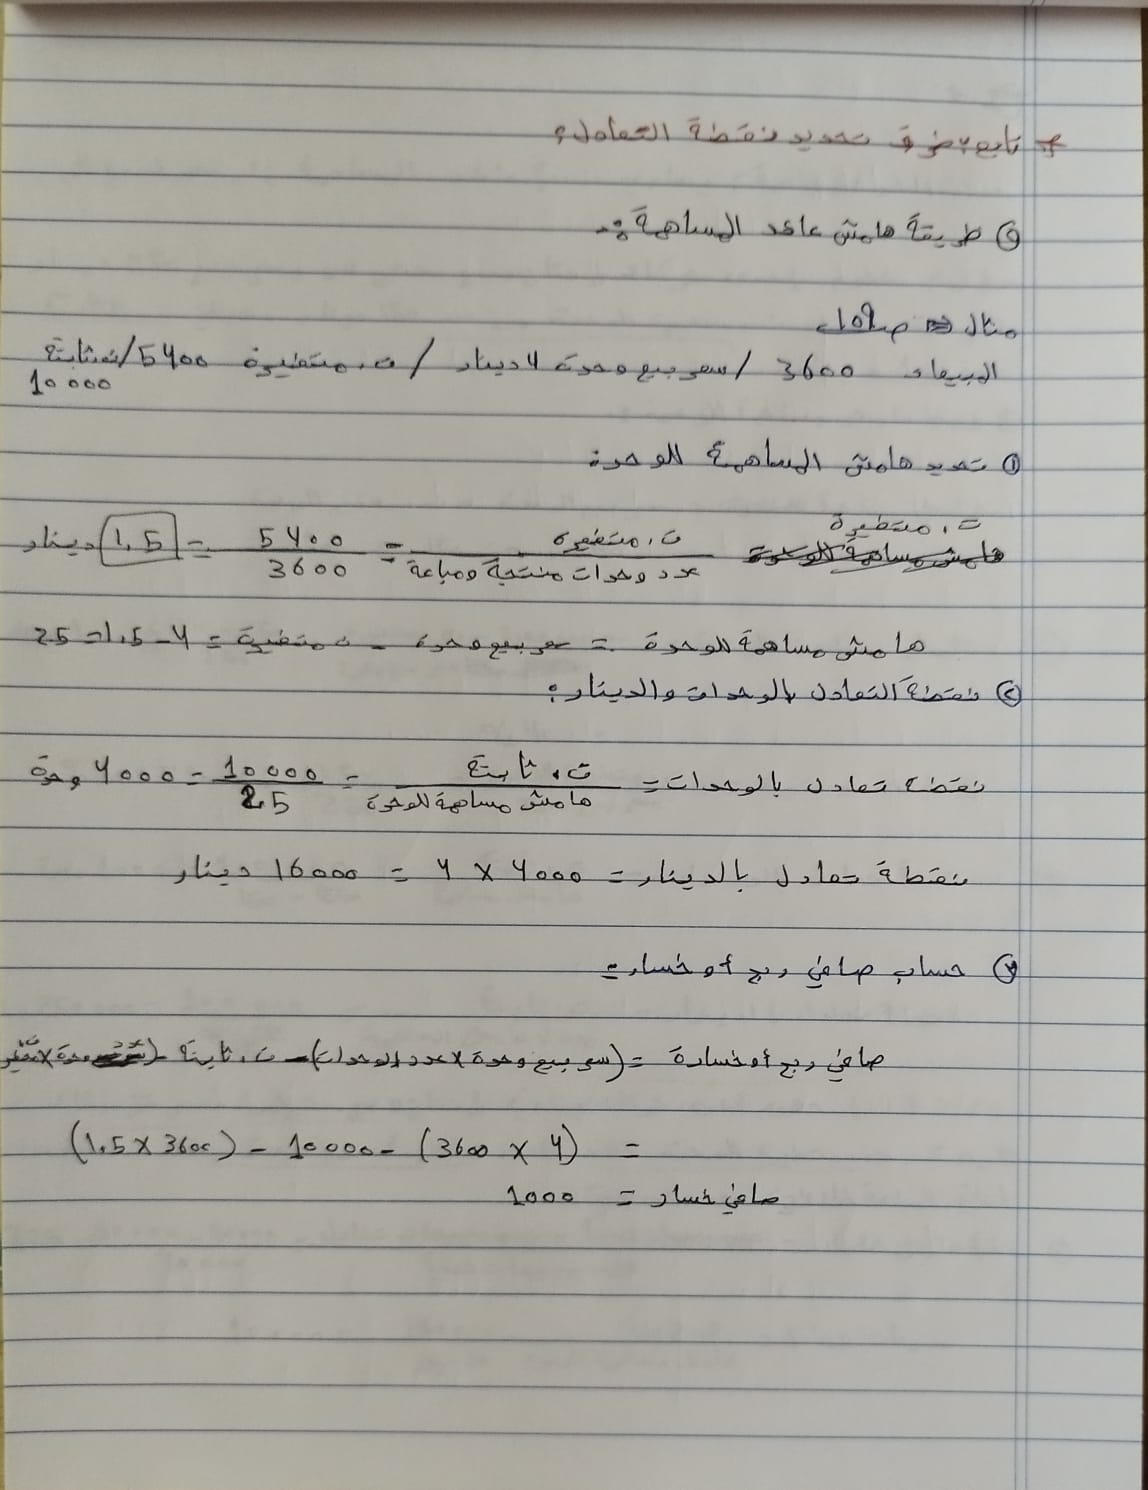 * تابع: طرق تحديد نقطة التعادل:
② طريقة هامش عائد المساهمة:-
مثال ⇐ ص
المبيعات 3600 / سعر بيع وحدة 4 دينار / ت. متغيرة 5400 / ت ثابتة
10000
① تحديد هامش المساهمة للوحدة
ت. متغيرة = ت. متغيرة / عدد وحدات منتجة ومباعة = 5400 / 3600 = 1.5 دينار
هامش مساهمة للوحدة = سعر بيع وحدة - ت متغيرة = 4 - 1.5 = 25
② نقطة التعادل بالوحدات والدينار:
نقطة تعادل بالوحدات = ت. ثابتة / هامش مساهمة للوحدة = 10000 / 2.5 = 4000 وحدة
نقطة تعادل بالدينار = 4000 × 4 = 16000 دينار
③ حساب صافي ربح أو خسارة
صافي ربح أو خسارة = (سعر بيع وحدة × عدد الوحدات) - ت. ثابتة - (
= (4 × 3600) - 10000 - (3600 × 1.5)
صافي خسار = 1000